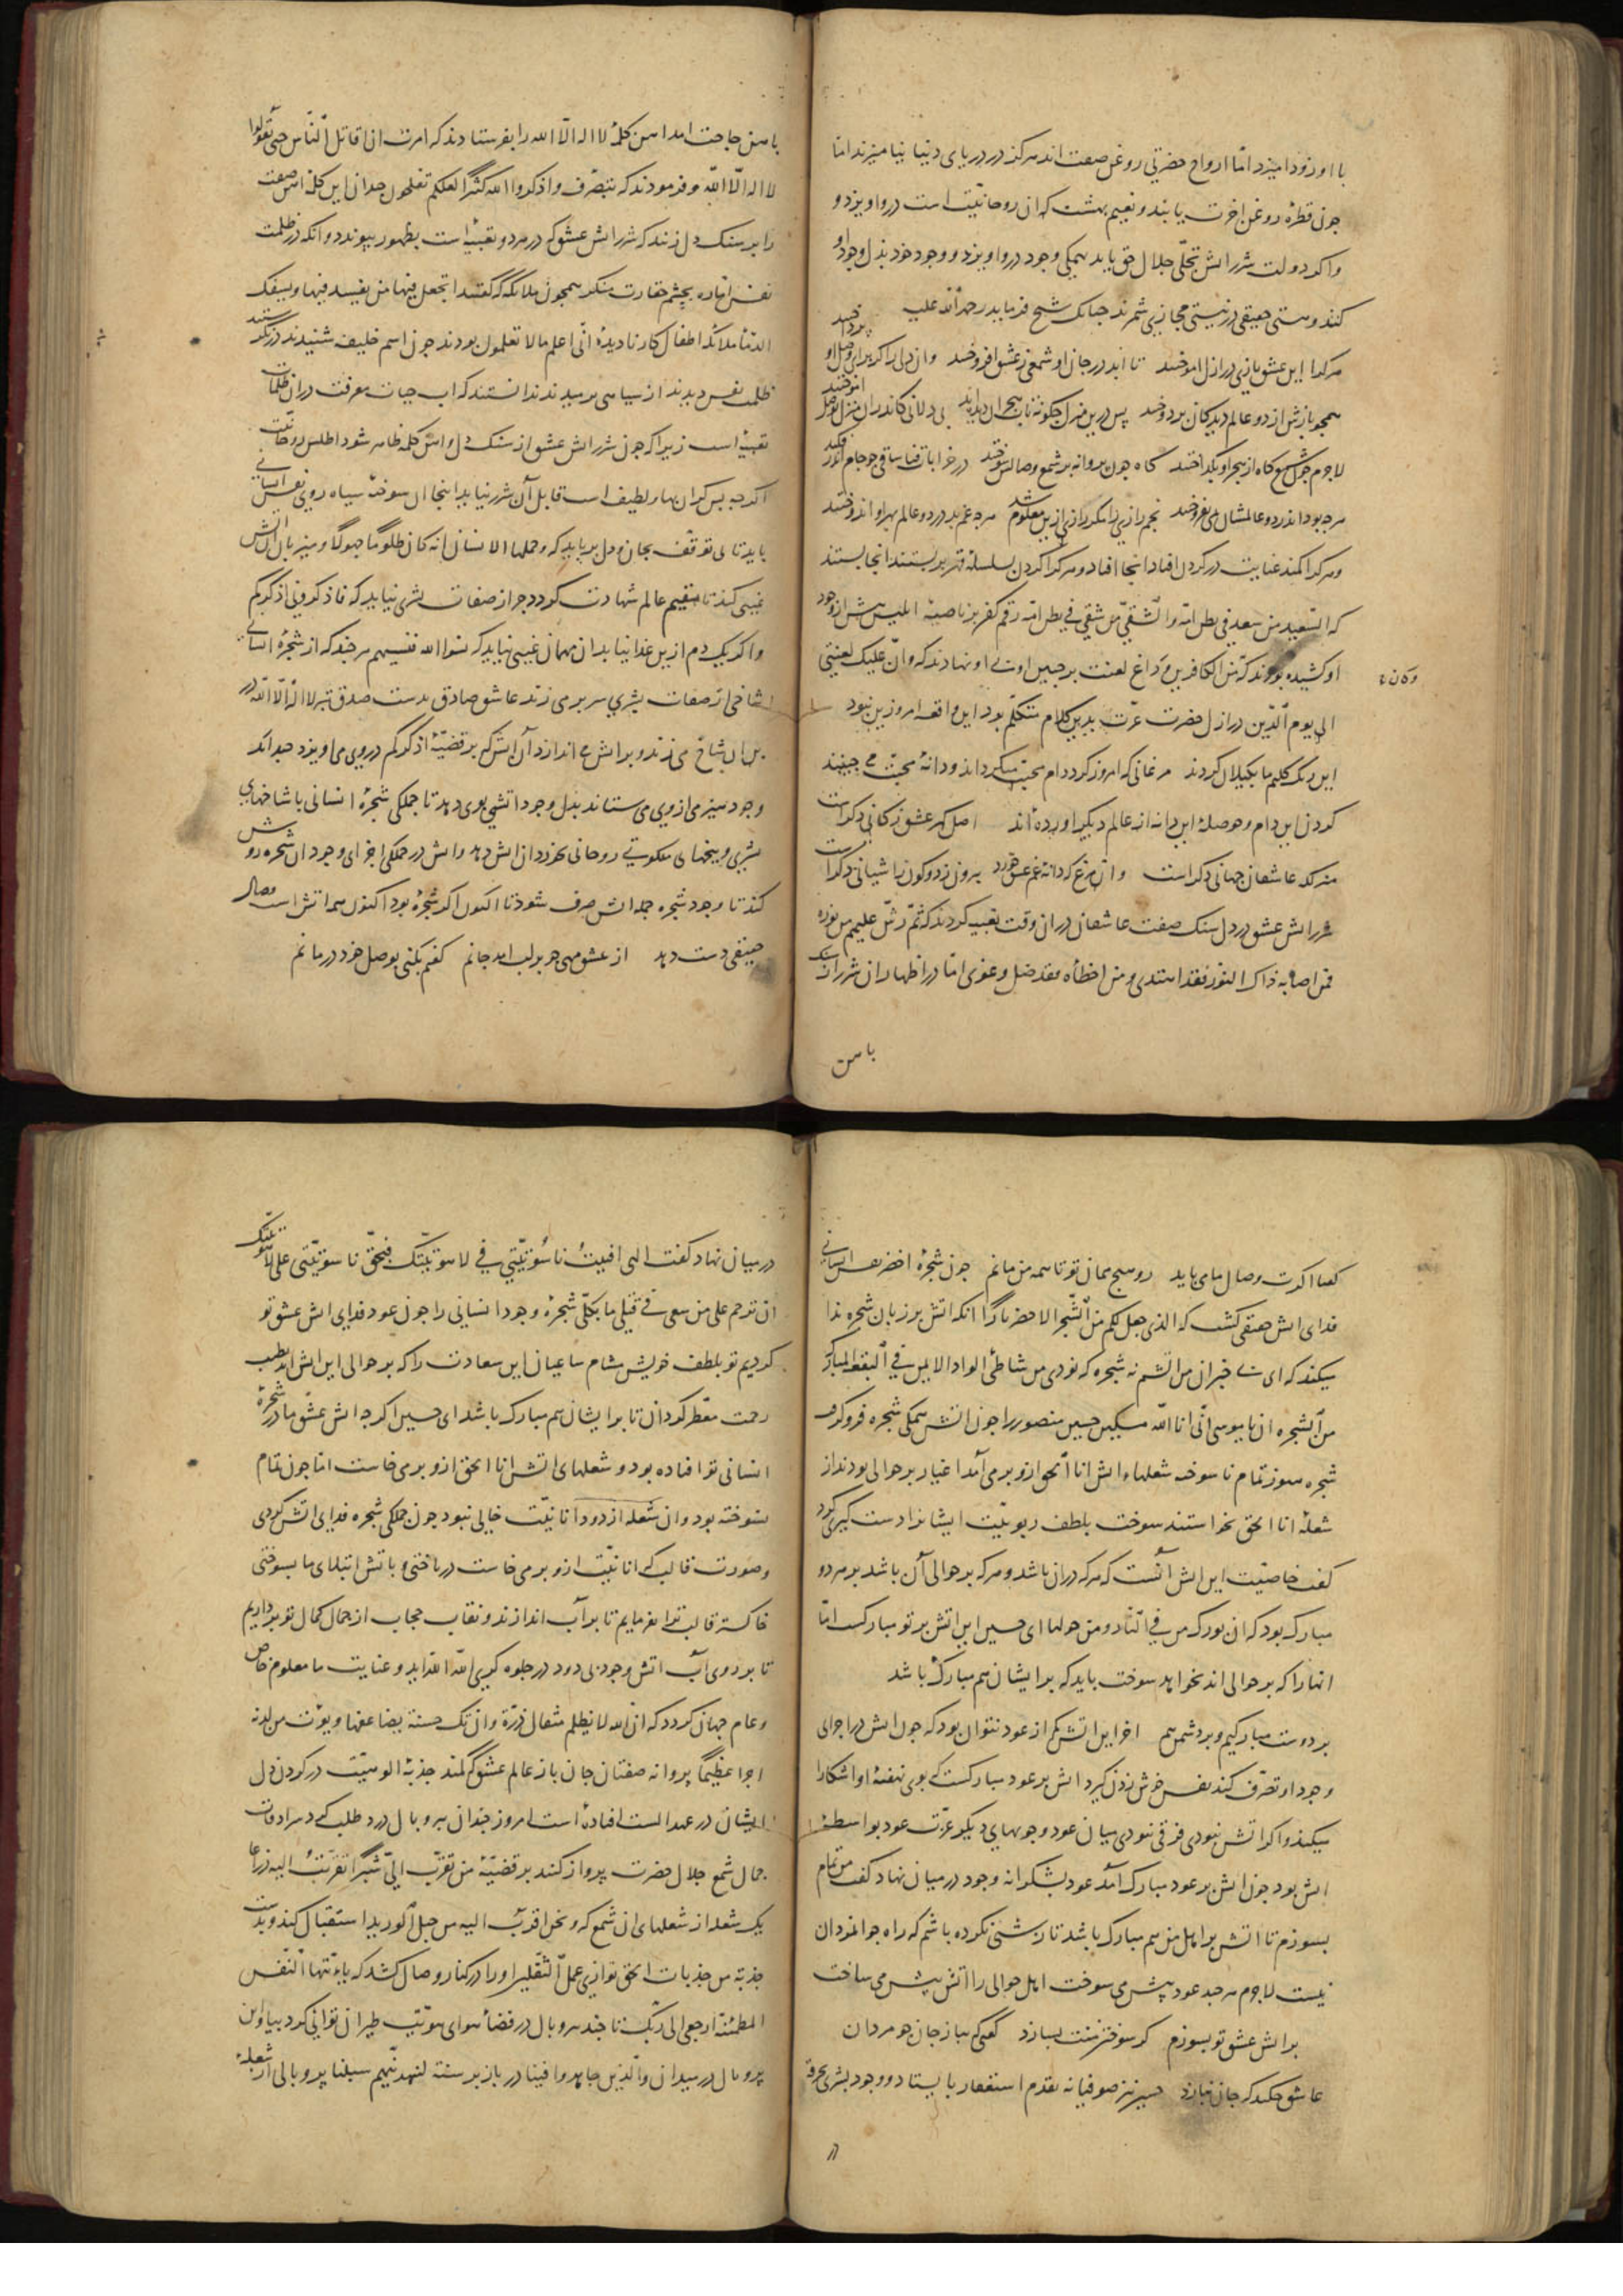 با او زود امیزد امّا ارواح حضرتی روغن صفت اند هرکز در دریای دنیا نیامیزند امّا
چون قطرهٔ روغن اخرت یابند و نعیم بهشت که ان روحانیّت است درو اویزد و
واکر دولت شرر اتش تجلّی جلال حق یابد بهمکی وجود درو اویزد و وجود خود بذل وجود او
کند و هستی حقیقی در نیستی مجازی شمرند جنانک شیخ فرماید رحمة الله علیه
هرکرا این عشق بازی در ازل اموختند تا ابد در جان او شمعی ز عشق افروختند وان دلی را کز برای وصل او پرداختند
همجو بازش از دو عالم دیدکان بردوختند پس درین منزل جکونه تاب هجران اورند بی دلانی کاندران منزل بوصل اموختند
لاجرم جون شمع کاه از هجر او بکداختند کاه جون پروانه بر شمع وصالش سوختند در خرابات فنا ساقی جو جام اندر فکند
هرجه بود اندر دو عالمشان بمی بفروختند نجم رازی را مکر رازی ازین معلوم شد هرجه غم بد در دو عالم بهر او اندوختند
وهرکرا کمند عنایت در کردن افتاد انجا افتاد وهرکرا کردن بسلسلهٔ قهر بربستند انجا بستند
که السّعید من سعد فی بطن امّه والشّقیّ من شقی فی بطن امّه رقم کفر بر ناصیهٔ ابلیس بیش از وجود
او کشیده بودند که من الکافرین و داغ لعنت بر جبین او نهادند که وانّ علیک لعنتی
وکان
الی یوم الدّین در ازل حضرت عزّت بدین کلام متکلّم بود این واقعه امروزین نبود
این رنک کلیم ما بکیلان کردند مرغانی که امروز کرد دام محبّت میکردند و دانهٔ محبّت می جینند
کردن این دام و حوصلهٔ این دانه از عالم دیکر اورده اند اصل کهر عشق ز کانی دکر است
منزلکه عاشقان جهانی دکر است وان مرغ که دانهٔ غم عشق خورد بیرون ز دو کون ز اشیانی دکر است
شرر اتش عشق در دل سنک صفت عاشقان دران وقت تعبیه کردند که ثمّ رشّ علیهم من نوره
فمن اصابه ذاک النور فقد اهتدی ومن اخطأه فقد ضلّ وغوی امّا در اظهار ان شرر از سنک
باهن
باهن حاجت امد اهن کلمهٔ لا اله الّا الله را بفرستادند که امرت ان اقاتل النّاس حتّی یقولوا
لا اله الّا اللّه و فرمودند که بتصرّف واذکروا الله کثیرًا لعلکم تفلحون جندان این کلمهٔ اهن صفت
را بر سنک دل زنند که شرر اتش عشق که در هر دو تعبیه است بظهور پیوندد وانکه در ظلمت
نفس امّاره بجشم حقارت منکر همجون ملائکه که کفتند اتجعل فیها من یفسد فیها ویسفک
الدّماء ملائکه اطفال کار نادیدهٔ انّی اعلم ما لا تعلمون بودند جون اسم خلیفه شنیدند در نکرستند
ظلمت نفس دیدند از سیاهی برمیدند ندانستند که اب حیات معرفت دران ظلمات
تعبیه است زیرا که جون شرر اتش عشق از سنک دل واهن کلمه ظاهر شود اطلس روحانیّت
اکرجه بس کران بها ولطیف است قابل آن شرر نیاید اینجا ان سوختهٔ سیاه روی نفس انسانی
باید تا بی توقّف بجان و دل برباید که وحملها الانسان انه کان ظلومًا جهولًا وهیزم بال اتش
غیبی کند تا مقیم عالم شهادت کردد جز از صفات بشری نیاید که فاذکرونی اذکرکم
واکر یک دم ازین غذا نیابد ان مهمان غیبی نپاید که نسوا الله فنسیهم هرجند که از شجرهٔ انسانی
شاخی از صفات بشری سر بر می زند عاشق صادق بدست صدق تبر لا اله الّا اللّه
بران شاخ می زند و بر اتش می اندازد آن اتش که بر قضیّهٔ اذکرکم در وی می اویزد جندانک
وجود هیزمی از وی می ستاند بدل وجود اتشی بوی دهد تا جملکی شجرهٔ انسانی با شاخهای
بشری و بیخهای ملکوتی روحانی بخورد ان اتش دهد واتش در جملکی اجزای وجود ان شجره روشن
کند تا وجود شجره جمله اتش صرف شود تا اکنون اکر شجره بود اکنون همه اتش است وصال
حقیقی دست دهد از عشق مهی جو بر لب امد جانم کفتم بکنی بوصل خود درمانم
کفتا اکرت وصال ما می باید رو هیج ممان تو تا همه من مانم جون شجرهٔ اخضر نفس انسانی
فدای اتش حقیقی کشت که الذی جعل لکم من الشّجر الاخضر نارًا انکه اتش بر زبان شجره ندا
میکند که ای بی خبران من اتشم نه شجره که نودی من شاطئ الواد الایمن فی البقعة المبارکة
من الشجره ان یا موسی انّی انا اللّه مسکین حسین منصور را جون اتش همکی شجره فرو کرفت
شجره هنوز تمام نا سوخته شعلهاء اتش انا الحق ازو بر می آمد اغیار بر حوالی بودند از
شعلهٔ انا الحق نخواستند سوخت بلطف ربوبیّت ایشانرا دست کیری کرد
کفت خاصیّت این اتش آنست که هرکه دران باشد وهرکه بر حوالی آن باشد بر هر دو
مبارک بود که ان بورک من فی النّار ومن حولها ای حسین این اتش بر تو مبارکست امّا
انها را که بر حوالی اند نخواهد سوخت باید که بر ایشان هم مبارک باشد
بر دوست مبارکیم و بر دشمن هم اخر این اتش کم از عود نتوان بود که جون اتش در اجزای
وجود او تصرّف کند نفس خوش زدن کیرد اتش بر عود مبارکست که بوی نهفتهٔ او اشکارا
میکند واکر اتش نبودی فرقی نبودی میان عود و چوبهای دیکر عزّت عود بواسطهٔ
اتش بود جون اتش بر عود مبارک آمد عود بشکرانه وجود در میان نهاد کفت من تمام
بسوزم تا اتش بر اهل من هم مبارک باشد تا درشتی نکرده باشم که راه جوانمردان
نیست لاجرم هرجند عود پیش می سوخت اهل حوالی را اتش پیش می ساخت
بر اتش عشق تو بسوزم کر سوختن منت بسازد کفتی که بباز جان جو مردان
عاشق جکند که جان نبازد حسین نیز صوفیانه بقدم استغفار بایستاد و وجود بشری بخرقه
در
در میان نهاد کفت الهی افنیت ناسوتیّتی فی لاهوتیّتک فبحقّ ناسوتیّتی علی لاهوتیّتک
ان ترحم علی من سعی فی قتلی ما بکلّی شجرهٔ وجود انسانی را جون عود فدای اتش عشق تو
کردیم تو بلطف خویش مشام ساعیان این سعادت را که بر حوالی این اتش اند بطیب
رحمت معطّر کردان تا بر ایشان هم مبارک باشد ای حسین اکرجه اتش عشق ما در شجرهٔ
انسانی تو افتاده بود و شعلهای اتش انا الحق ازو بر می خاست امّا جون تمام
نسوخته بود وان شعله از دود انانیّت خالی نبود جون جملکی شجره فدای اتش کردی
وصورت قالب که انانیّت ازو بر می خاست درباختی و باتش ابتلای ما بسوختی
خاکستر قالب ترا بفرمایم تا بر آب اندازند و نقاب حجاب از جمال کمال تو برداریم
تا بر روی آب اتش وجود بی دود در جلوه کری اللّه اللّه اید و عنایت ما معلوم خاص
وعام جهان کردد که انّ الله لا یظلم مثقال ذرّة وان تک حسنة یضاعفها ویؤت من لدنه
اجرًا عظیمًا پروانه صفتان جان باز عالم عشق که کمند جذبهٔ الوهیّت در کردن دل
ایشان در عهد الست افتاده است امروز جندان بپر و بال درد طلب کرد سرادقات
جمال شمع جلال حضرت پرواز کنند بر قضیّهٔ من تقرّب الیّ شبرًا تقرّبت الیه ذراعًا
یک شعله از شعلهای ان شمع که ونحن اقرب الیه من حبل الورید استقبال کند و بدست
جذبة من جذبات الحقّ توازی عمل الثّقلین او را در کنار وصال کشد که یا ایّتها النّفس
المطمئنّة ارجعی الی ربّک تا جند بپر و بال در فضاء هوای هویّت طیران توانی کرد بیا و این
پر و بال در میدان والّذین جاهدوا فینا در باز بر سنّت لنهدینّهم سبلنا پر و بالی از شعلهٔ